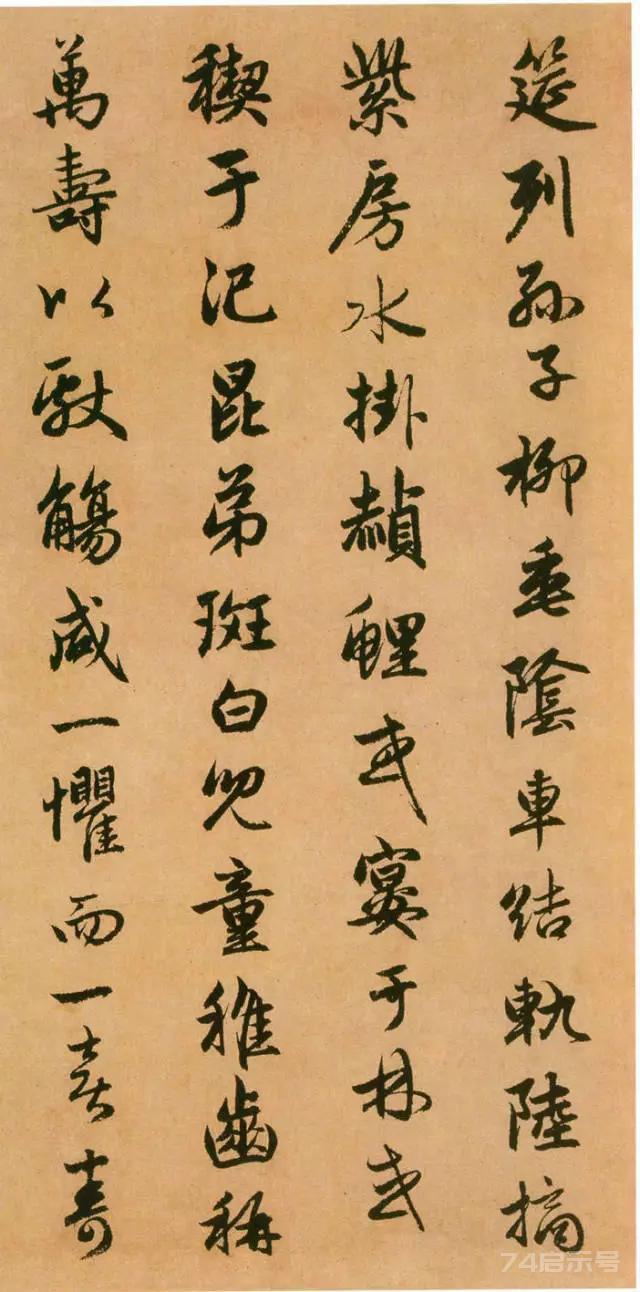 筵列孫子柳垂陰車結軌陸摘
紫房水掛赬鯉或宴于林或
禊于汜昆弟斑白兒童稚齒稱
萬壽以獻觴咸一懼而一喜壽
74启示号